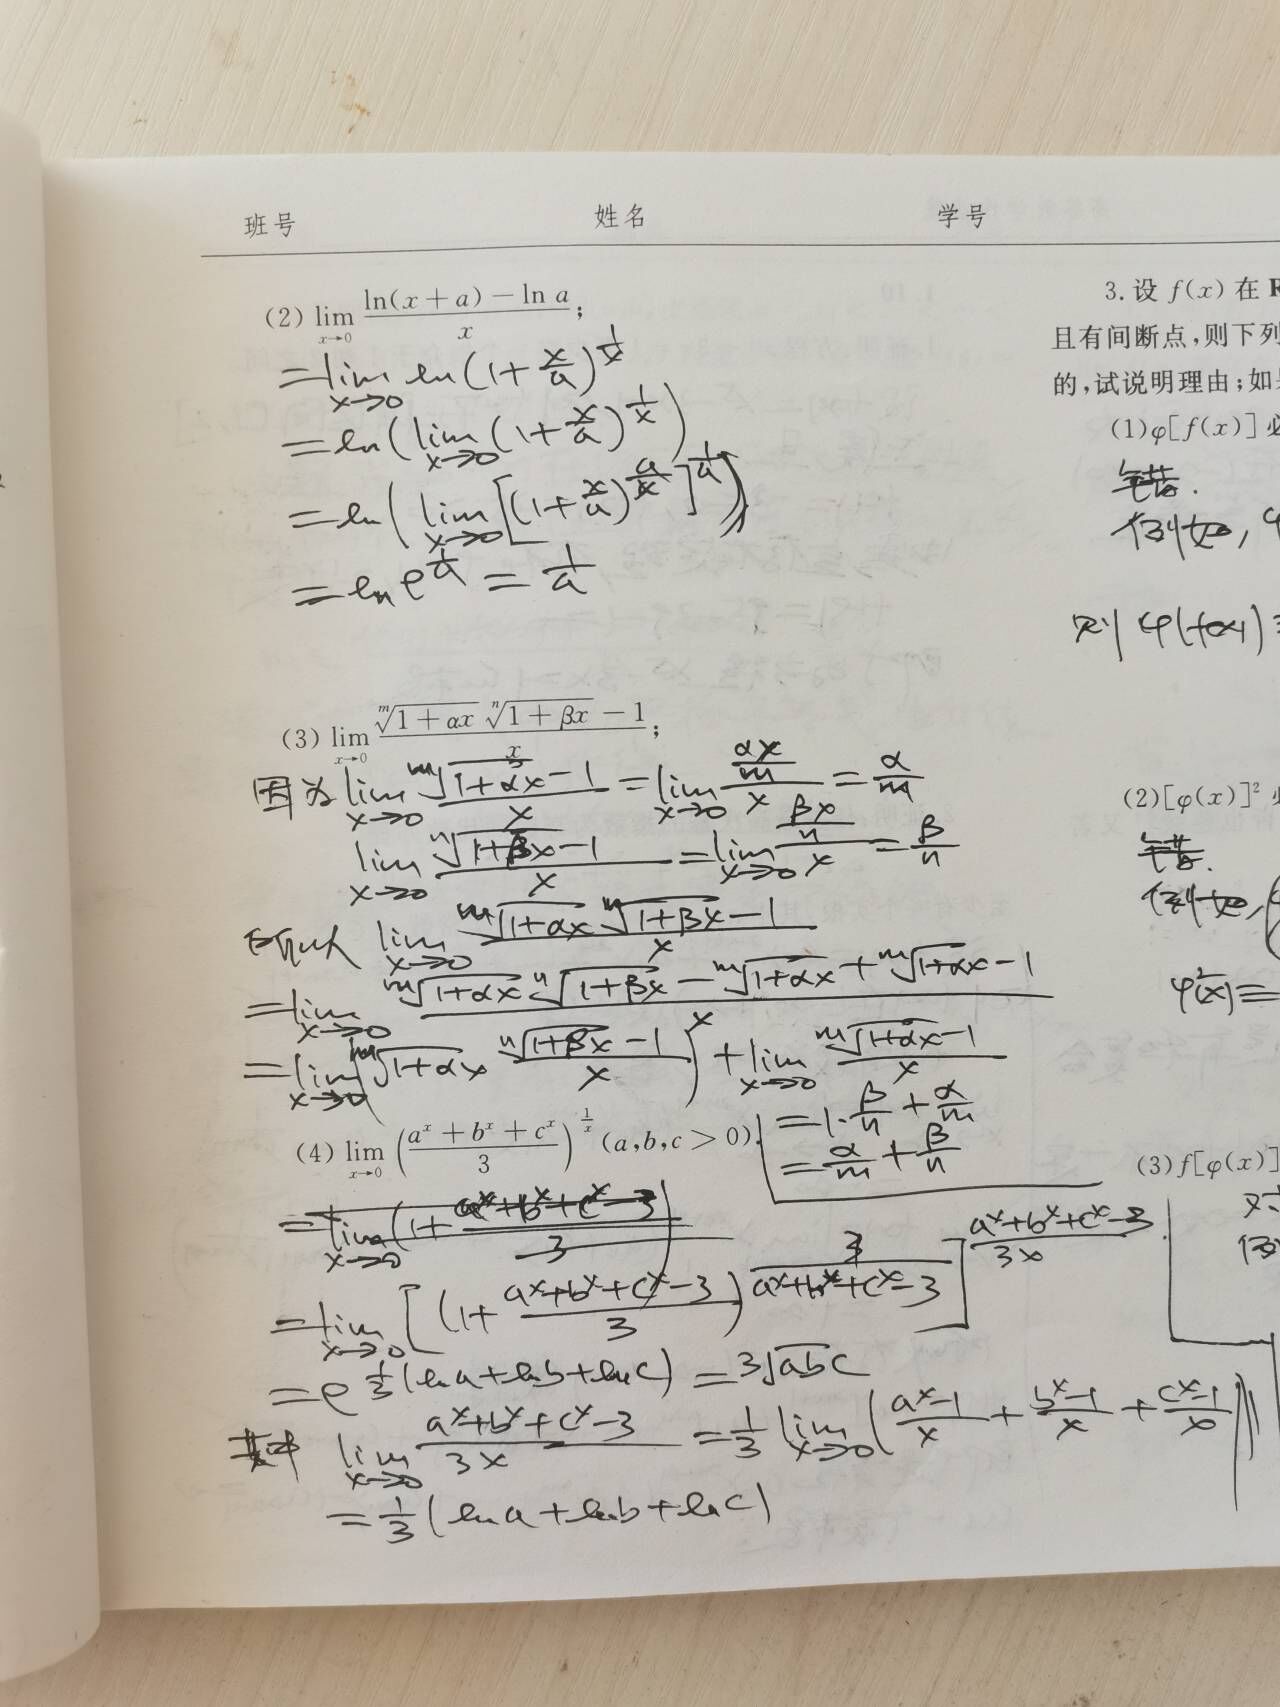 班号 姓名 学号
(2) lim_{x→0} (ln(x+a)-ln a)/x;
=lim_{x→0} ln(1+x/a)^{1/x}
=ln(lim_{x→0}(1+x/a)^{1/x})
=ln(lim_{x→0}[(1+x/a)^{a/x}]^{1/a})
=ln e^{1/a}=1/a
(3) lim_{x→0} (ᵐ√(1+αx) ⁿ√(1+βx) -1)/x;
因为 lim_{x→0} (ᵐ√(1+αx)-1)/x = lim_{x→0} (αx/m)/x = α/m
lim_{x→0} (ⁿ√(1+βx)-1)/x = lim_{x→0} (βx/n)/x = β/n
所以 lim_{x→0} (ᵐ√(1+αx) ⁿ√(1+βx)-1)/x
=lim_{x→0} (ᵐ√(1+αx) ⁿ√(1+βx) - ᵐ√(1+αx) + ᵐ√(1+αx) -1)/x
=lim_{x→0} (ᵐ√(1+αx) (ⁿ√(1+βx)-1)/x) + lim_{x→0} (ᵐ√(1+αx)-1)/x
=1·β/n+α/m
=α/m+β/n
(4) lim_{x→0} ((a^x+b^x+c^x)/3)^{1/x} (a,b,c>0).
=lim_{x→0}(1+(a^x+b^x+c^x-3)/3)
=lim_{x→0}[(1+(a^x+b^x+c^x-3)/3)^{3/(a^x+b^x+c^x-3)}]^{(a^x+b^x+c^x-3)/3x}
=e^{1/3(ln a+ln b+ln c)}=³√abc
其中 lim_{x→0} (a^x+b^x+c^x-3)/3x = 1/3 lim_{x→0}((a^x-1)/x+(b^x-1)/x+(c^x-1)/x)
=1/3(ln a+ln b+ln c)
3.设 f(x) 在 R
且有间断点,则下列
的,试说明理由;如果
(1)φ[f(x)]必
错.
例如, φ
则 φ(f(x))≡
(2)[φ(x)]² 必
错.
例如,
φ²(x)≡
(3)f[φ(x)]